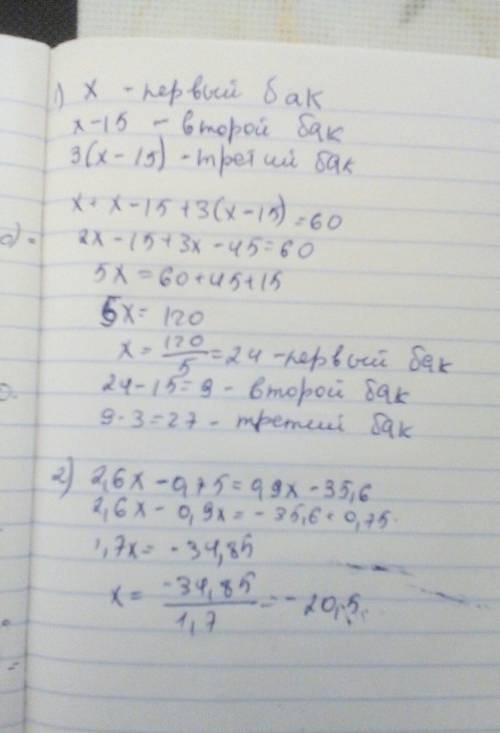 1) х - первый бак
х-15 - второй бак
3(х-15) - третий бак
х+х-15+3(х-15)=60
2х-15+3х-45=60
5х=60+45+15
5х=120
х=120/5=24-первый бак
24-15=9 - второй бак
9·3=27 - третий бак
2) 2,6х-0,75=0,9х-35,6
2,6х-0,9х=-35,6+0,75
1,7х=-34,85
х=-34,85/1,7=-20,5